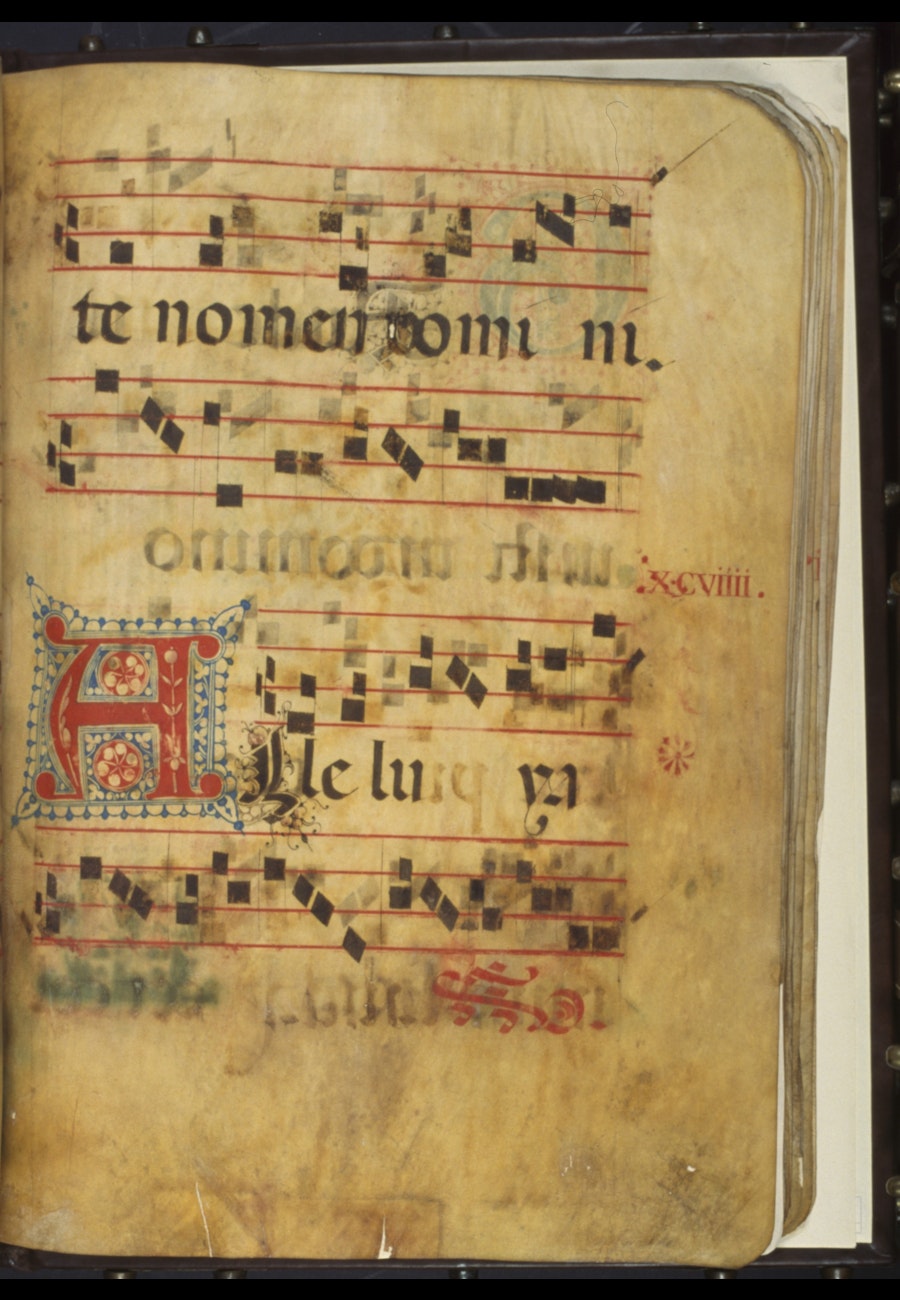 te nomen domi ni.
X·CVIIII.
Alle lu ya